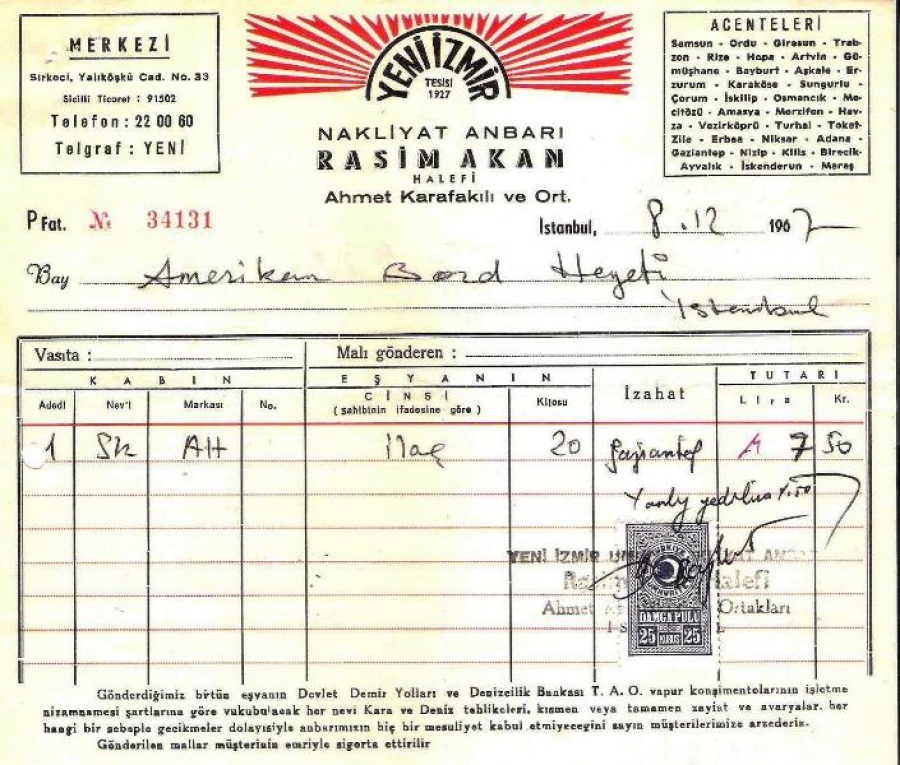 MERKEZİ
Sirkeci, Yalıköşkü Cad. No. 33
Sicilli Ticaret : 91502
Telefon : 22 00 60
Telgraf : YENİ
YENİ İZMİR
TESİSİ
1927
NAKLİYAT ANBARI
RASİM AKAN
HALEFİ
Ahmet Karafakılı ve Ort.
ACENTELERİ
Samsun - Ordu - Giresun - Trab-
zon - Rize - Hopa - Artvin - Gü-
müşhane - Bayburt - Aşkale - Er-
zurum - Karaköse - Sungurlu -
Çorum - İskilip - Osmancık - Me-
citözü - Amasya - Merzifon - Hav-
za - Vezirköprü - Turhal - Tokat-
Zile - Erbaa - Niksar - Adana -
Gaziantep - Nizip - Kilis - Birecik-
Ayvalık - İskenderun - Maraş
P Fat. № 34131
İstanbul, 8.12 1967
Bay Amerikan Bord Heyeti
İstanbul
Vasıta : Malı gönderen :
KABIN EŞYANIN İzahat TUTARI
Adedi Nev'i Markası No. CİNSİ Kilosu Lira Kr.
(sahibinin ifadesine göre)
1 Sk AH İlaç 20 Gaziantep 7 50
Yalnız yedilira
YENİ İZMİR
Ahmet Ortakları
DAMGA PULU
25 KURUŞ 25
Gönderdiğimiz bütün eşyanın Devlet Demir Yolları ve Denizcilik Bankası T. A. O. vapur konşimentolarının işletme
nizamnamesi şartlarına göre vukubulacak her nevi Kara ve Deniz tehlikeleri, kısmen veya tamamen zayiat ve avaryalar, her
hangi bir sebeple gecikmeler dolayısiyle anbarımızın hiç bir mesuliyet kabul etmiyecegini sayın müşterilerimize arzederiz.
Gönderilen mallar müşterinin emriyle sigorta ettirilir